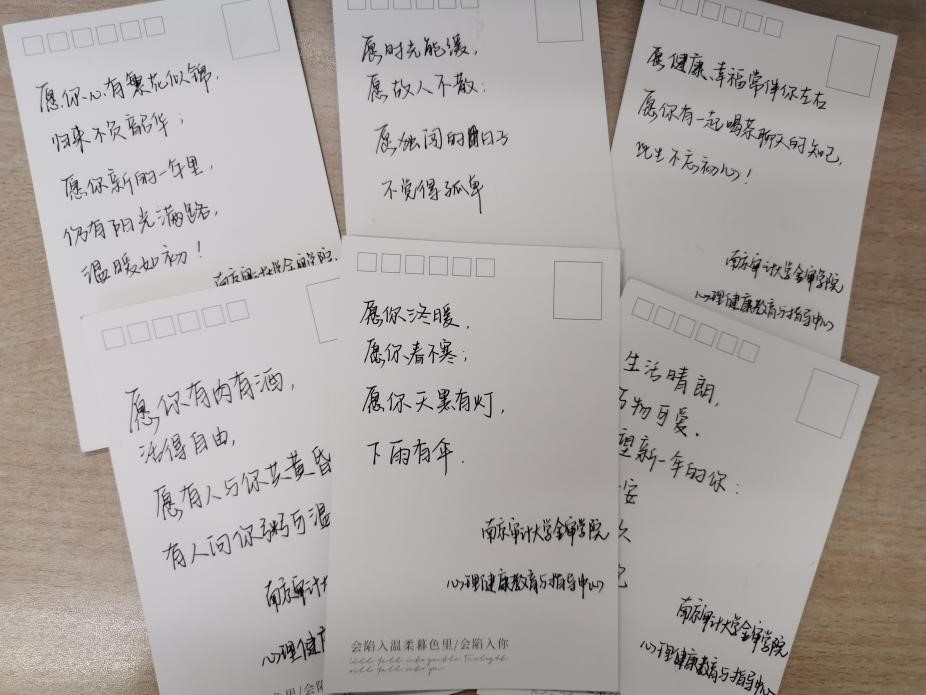 愿你心有繁花似锦，
归来不负韶华；
愿你新的一年里，
仍有阳光满路，
温暖如初！
南京审计大学金审学院
愿时光能缓，
愿故人不散；
愿独闯的日子
不觉得孤单
愿健康、幸福常伴你左右
愿你有一起喝茶聊天的知己，
此生不忘初心！
南京审计大学金审学院
心理健康教育与指导中心
愿你有肉有酒，
活得自由，
愿有人与你共黄昏
有人问你粥可温
南京审计大
心理健康
愿你冬暖，
愿你春不寒；
愿你天黑有灯，
下雨有伞.
南京审计大学金审学院
心理健康教育与指导中心
会陷入温柔暮色里/会陷入你
生活晴朗，
物可爱.
望新一年的你：
安
南京审计大学金审学院
心理健康教育与指导中心